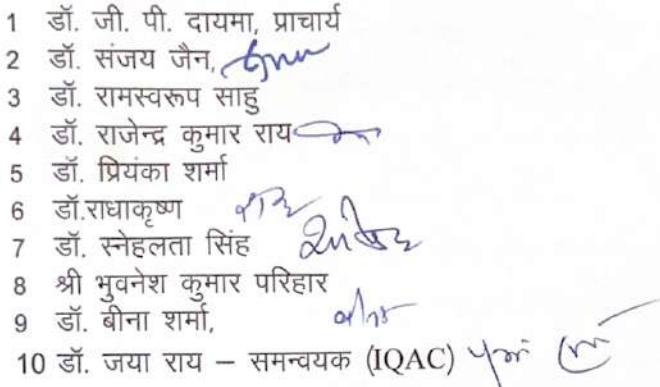 1 डॉ. जी. पी. दायमा, प्राचार्य
2 डॉ. संजय जैन,
3 डॉ. रामस्वरूप साहु
4 डॉ. राजेन्द्र कुमार राय
5 डॉ. प्रियंका शर्मा
6 डॉ.राधाकृष्ण
7 डॉ. स्नेहलता सिंह
8 श्री भुवनेश कुमार परिहार
9 डॉ. बीना शर्मा,
10 डॉ. जया राय – समन्वयक (IQAC)